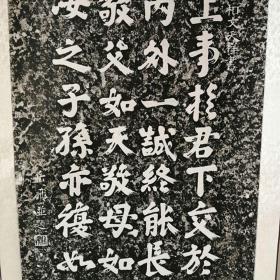 上事於君下交於
内外一誠終能長
敬父如天敬母如
汝之子孫亦復如